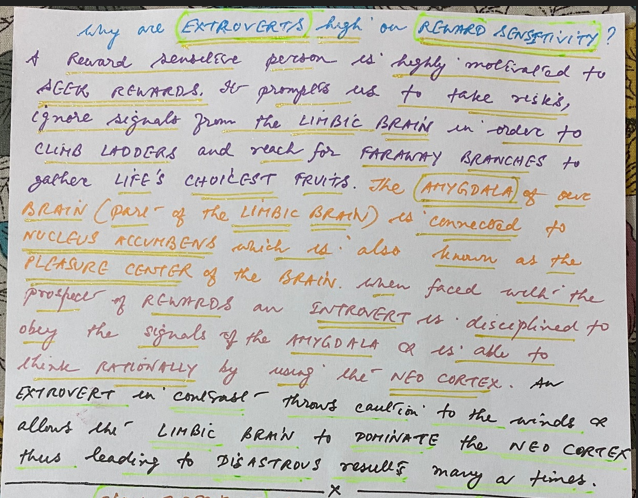 Why are EXTROVERTS high on REWARD SENSITIVITY?
A Reward sensitive person is highly motivated to
SEEK REWARDS. It prompts us to take risks,
ignore signals from the LIMBIC BRAIN in order to
CLIMB LADDERS and reach for FARAWAY BRANCHES to
gather LIFE'S CHOICEST FRUITS. The AMYGDALA of our
BRAIN (part of the LIMBIC BRAIN) is connected to
NUCLEUS ACCUMBENS which is also known as the
PLEASURE CENTER of the BRAIN. When faced with the
prospect of REWARDS an INTROVERT is disciplined to
obey the signals of the AMYGDALA & is able to
think RATIONALLY by using the NEO CORTEX. An
EXTROVERT in contrast throws caution to the winds &
allows the LIMBIC BRAIN to DOMINATE the NEO CORTEX
thus leading to DISASTROUS results many a times.
x